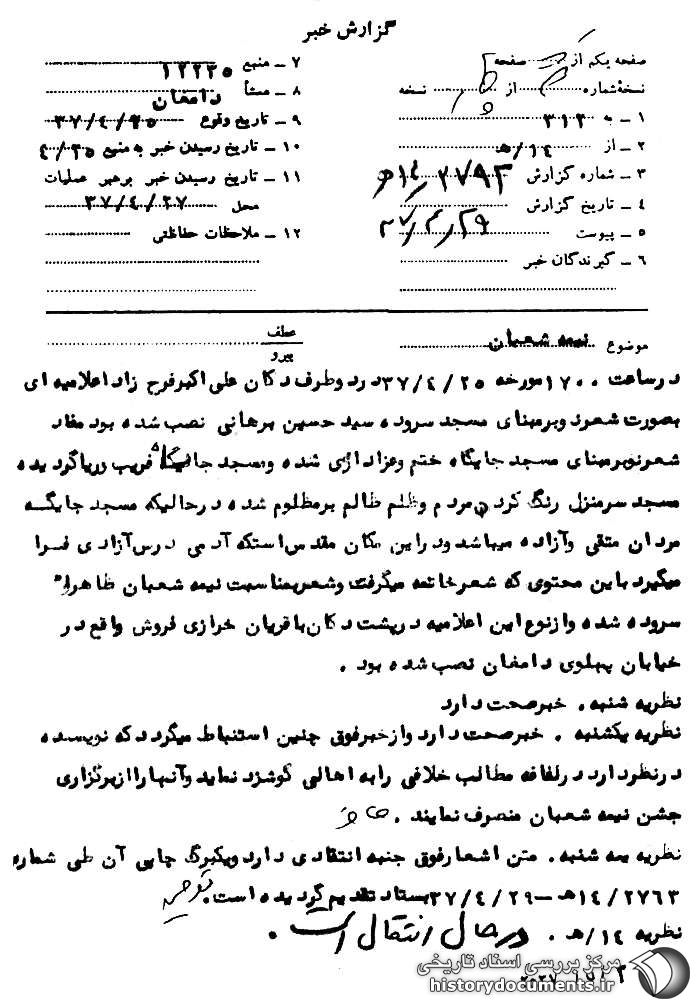 گزارش خبر
صفحه یکم از صفحه
نسخهٔ شماره از نسخه
۱ ــ به ۳۱۲
۲ ــ از ۱۴/هـ
۳ ــ شماره گزارش ۲۷۹۳/۱۴هـ
۴ ــ تاریخ گزارش ۳۷/۴/۲۹
۵ ــ پیوست
۶ ــ گیرندگان خبر
۷ ــ منبع ۱۲۲۳۵
۸ ــ منشأ دامغان
۹ ــ تاریخ وقوع ۳۷/۴/۲۵
۱۰ ــ تاریخ رسیدن خبر به منبع ۴/۲۵
۱۱ ــ تاریخ رسیدن خبر برهبر عملیات
محل ۳۷/۴/۲۷
۱۲ ــ ملاحظات حفاظتی
موضوع نیمه شعبان
عطف
پیرو
در ساعت ۱۷۰۰ مورخه ۳۷/۴/۲۵ در دو طرف دکان علی اکبر فرح زاد اعلامیه ای
بصورت شعر د وبرمبنای مسجد سروده سید حسین برهانی نصب شده بود مفاد
شعر نوبرمبنای مسجد جایگاه ختم وعزاداری شده ومسجد جایگاه فریب وریا گردیده
مسجد سرمنزل رنگ کردن مردم وظلم ظالم برمظلوم شده درحالیکه مسجد جایگـه
مردان متقی وآزاده میباشد ودراین مکان مقدس استکه آدمی درس آزادی فـرا
میگیرد باین محتوی که شعر خاتمه میگرفت وشعر بمناسبت نیمه شعبان ظاهراً
سروده شده وازنوع این اعلامیه درپشت دکان باقریان خرازی فروش واقع در
خیابان پهلوی دامغان نصب شده بود .
نظریه شنبه . خبرصحت دارد
نظریه یکشنبه . خبرصحت دارد وازخبرفوق چنین استنباط میگردد که نویسنده
درنظردارد درلفافه مطالب خلافی رابه اهالی گوشزد نماید وآنهارا ازبرگزاری
جشن نیمه شعبان منصرف نمایند .
نظریه سه شنبه . متن اشعارفوق جنبه انتقادی دارد ویکبرگ چاپی آن طی شماره
۱۴/۲۷۶۳هـ ــ ۳۷/۴/۲۹ بستاد تقدیم گردیده است .
نظریه ۱۴/هـ . در حال انتقال است .
مرکز بررسی اسناد تاریخی
historydocuments.ir